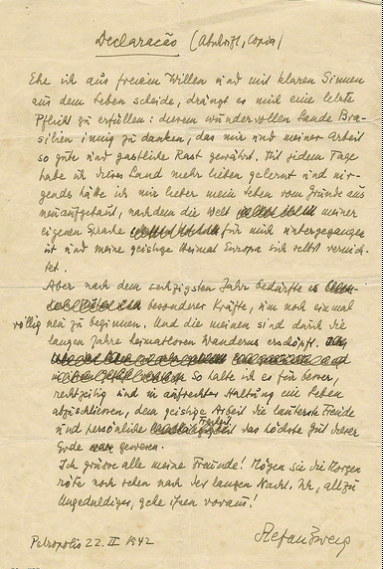 Declaracão (Abschrift, Copia)
Ehe ich aus freiem Willen und mit klaren Sinnen
aus dem Leben scheide, drängt es mich eine letzte
Pflicht zu erfüllen: diesem wundervollen Lande Bra-
silien innig zu danken, das mir und meiner Arbeit
so gute und gastliche Rast gewährt. Mit jedem Tage
habe ich dieses Land mehr lieben gelernt und nir-
gends hätte ich mir lieber mein Leben vom Grunde aus
neu aufgebaut, nachdem die Welt meiner
eigenen Sprache für mich untergegangen
ist und meine geistige Heimat Europa sich selbst vernich-
tet.
Aber nach dem sechzigsten Jahr bedürfte es
besonderer Kräfte, um noch einmal
völlig neu zu beginnen. Und die meinen sind durch die
langen Jahre heimatlosen Wanderns erschöpft.
So halte ich es für besser,
rechtzeitig und in aufrechter Haltung ein Leben
abzuschliessen, dem geistige Arbeit die lauterste Freude
und persönliche Freiheit das höchste Gut dieser
Erde gewesen.
Ich grüsse alle meine Freunde! Mögen sie die Morgen
röte noch sehen nach der langen Nacht. Ich, allzu
Ungeduldiger, gehe ihnen voraus!
Stefan Zweig
Petropolis 22. II 1942